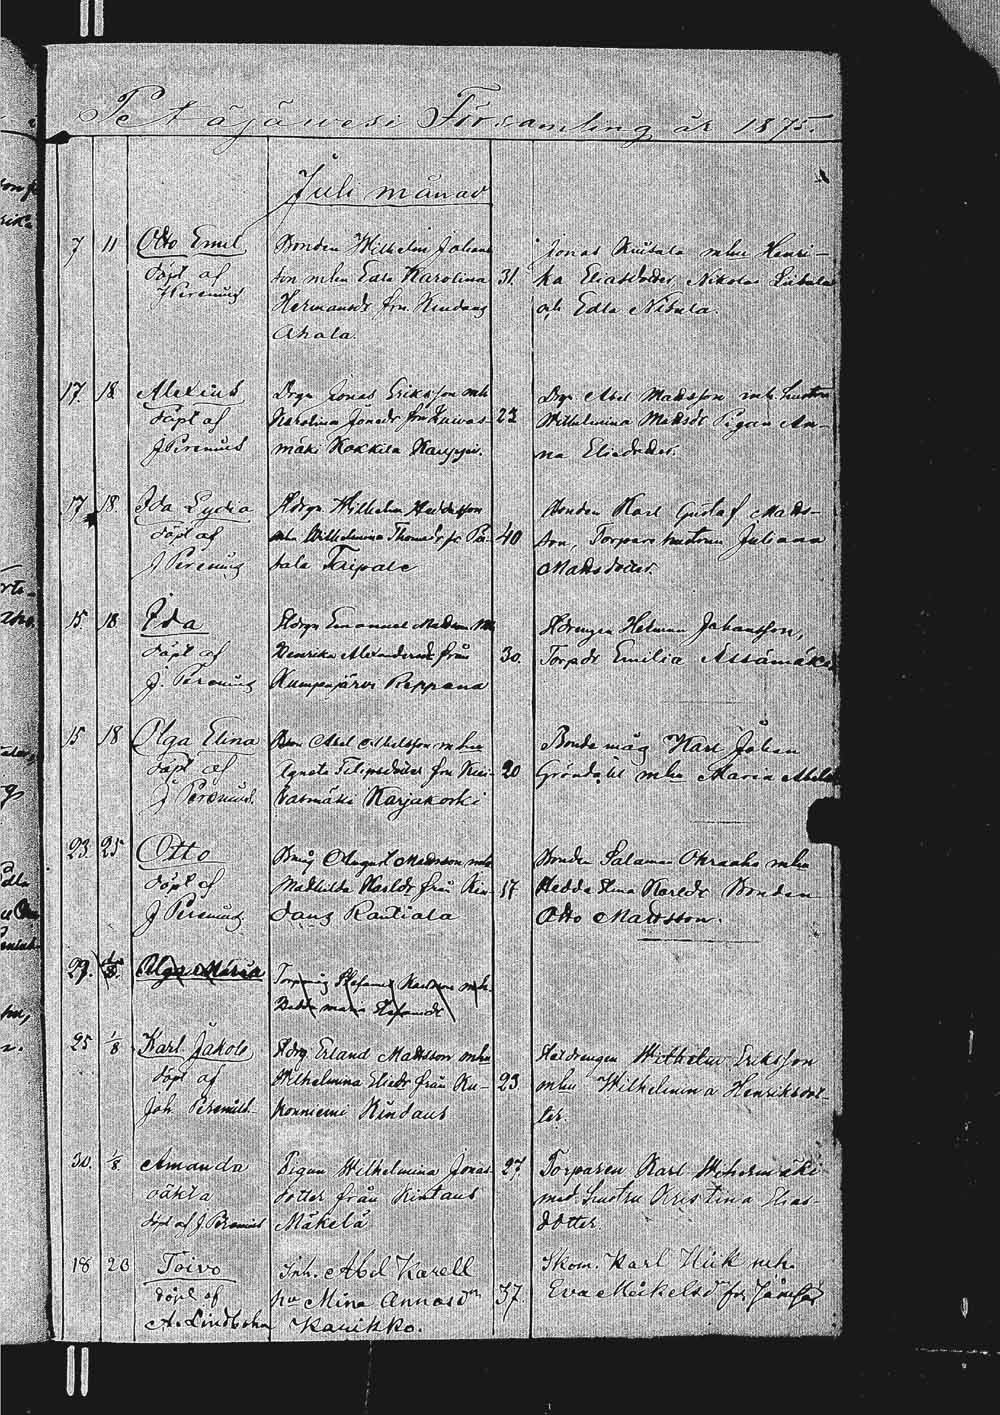 Petäjäwesi Församling år 1875.
Juli månad
7 11 Otto Emil
döpt af
J Perenius
Bonden Wilhelm Johans
son mhu Edla Karolina
Hermansdr frn Kindaus
Ahola.
31.
Jonas mhu Henri-
ka Eliasdotter, Nikolai
och Edla
17. 18 Alexius
döpt af
J Perenius
Drgn Jonas Eriksson mh
Karolina Jonsdr frn Kuiwas-
mäki Kokkila
23
Drgn Abel Mattsson mh. hustru
Wilhelmina Mattsdr Pigan An-
na Eliedotter.
17. 18. Ida Lydia
döpt af
J Perenius
Hdrgn Wilhelm
mhu Wilhelmina Thomasdr
Taipale
40
Bonden Karl Gustaf Matts-
son, Torpare hustrun Juliana
Mattsdotter.
15. 18 Ida
döpt af
J. Perenius
Hdrgn Emanuel Mattsson mh
Henrika Alexandersdr från
Kumpujärvi Reppana
30.
Hdrengen Herman Johansson,
Torpdr Emilia Ässämäki
15 18 Olga Elina
döpt af
J Perenius.
Bon Abel Abelsson mhu
Agneta Filipsdotter frn Kui-
vasmäki Karjakoski
20
Bonde måg Karl Johan
Gröndahl mhu Maria Abels
23. 25 Otto
döpt af
J Perenius
Bmåg August Mattsson mh
Mathilda Karlsdr från Kin-
daus Rautiala
17
Bonden Salomon mhu
Hedda Karlsdr Bonden
Otto Mattsson.
27. 1/8. Olga Maria
Torpmåg Stefanus mh
maria Stefansdr
25 1/8 Karl Jakob
döpt af
Joh. Perenius.
Hdrg Erland Mattsson mhu
Wilhelmina Eliedr från Ku-
konniemi Kindaus
23
Hdrengen Wilhelm Eriksson
mhu Wilhelmina Henriksdot-
ter.
30. 1/8 Amanda
oäkta
döpt af J. Perenius
Pigan Wilhelmina Jonas-
dotter från Kintaus
Mäkelä
27
Torparen Karl
med hustru Kristina Elias-
dotter.
18 20 Toivo
döpt af
A. Lindholm
Inh. Abel Karell
hu Mina Annasdr
Kauikko.
37
Skom. Karl mh.
Eva Mikelsdr fr. Jämsä